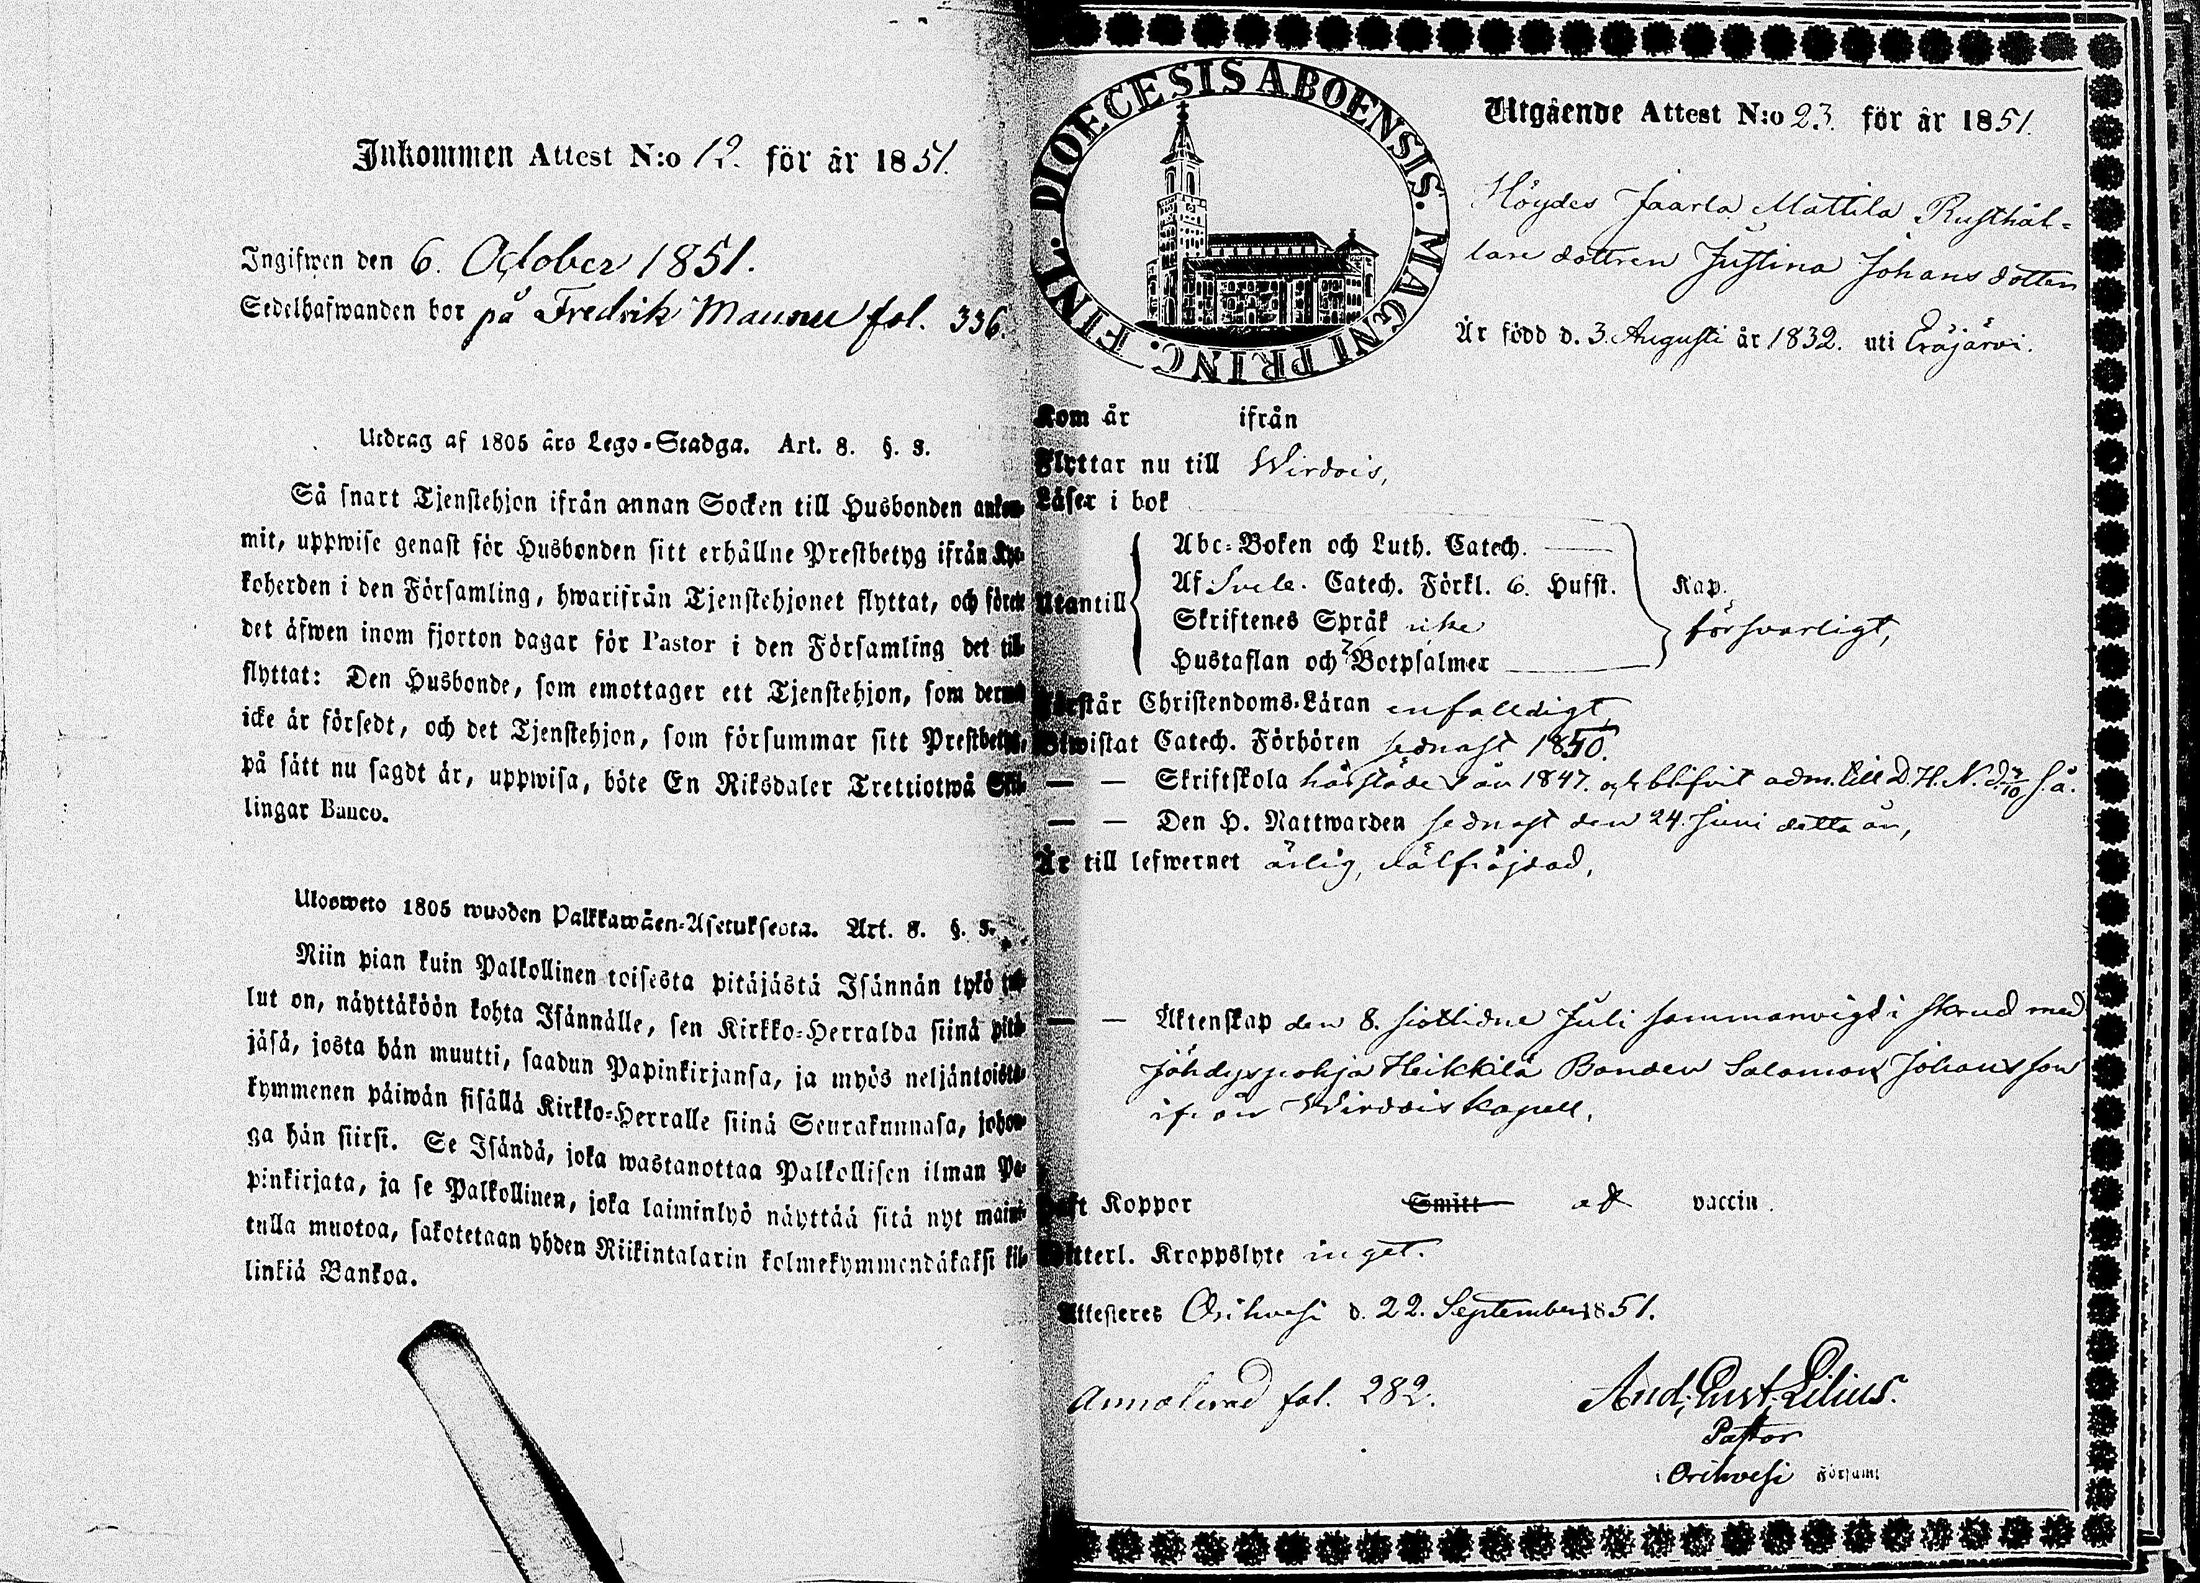 Inkommen Attest N:o 12. för år 1851.
Ingifwen den 6. October 1851.
Sedelhafwanden bor på Fredrik Maunu fol. 336.
Utdrag af 1805 års Lego-Stadga. Art. 8. §. 3.
Så snart Tjenstehjon ifrån annan Socken till Husbonden ankom-
mit, uppwise genast för Husbonden sitt erhållne Prestbetyg ifrån Kyr-
koherden i den Församling, hwarifrån Tjenstehjonet flyttat, och förete
det äfwen inom fjorton dagar för Pastor i den Församling det till-
flyttat: Den Husbonde, som emottager ett Tjenstehjon, som dermed
icke är försedt, och det Tjenstehjon, som försummar sitt Prestbetyg,
på sätt nu sagdt är, uppwisa, böte En Riksdaler Trettiotwå Skil-
lingar Banco.
Ulosweto 1805 wuoden Palkkawäen-Asetuksesta. Art. 8. §. 3.
Niin pian kuin Palkollinen toisesta pitäjästä Isännän tykö tul-
lut on, näyttäköön kohta Isännälle, sen Kirkko-Herralda siinä pitä-
jäsä, josta hän muutti, saadun Papinkirjansa, ja myös neljäntoista-
kymmenen päiwän sisällä Kirkko-Herralle siinä Seurakunnasa, johon-
ga hän siirsi. Se Isändä, joka wastanottaa Palkollisen ilman Pa-
pinkirjata, ja se Palkollinen, joka laiminlyö näyttää sitä nyt maini-
tulla muotoa, sakotetaan yhden Riikintalarin kolmekymmendäkaksi kil-
linkiä Bankoa.
DIOECESIS ABOENSIS. MAGNI PRINC. FINL.
Utgående Attest N:o 23. för år 1851.
Höydes Jaarla Mattila Rusthål-
lare dottren Justina Johansdotter
Är född d. 3. Augusti år 1832. uti Eräjärvi.
Kom år ifrån
Flyttar nu till Wirdois,
Läser i bok
Utantill
Abc-Boken och Luth. Catech.
Af Sveb. Catech. Förkl. 6. Hufst.
Skriftenes Språk icke
Hustaflan och 7 Botpsalmer
Kap.
försvarligt,
Förstår Christendoms-Läran enfalldigt,
Biwistat Catech. Förhören sednast 1850.
— — Skriftskola härstädes år 1847. och blifvit adm. till D. H. N. d. 3/10 s. å.
— — Den H. Nattwarden sednast den 24 Juni detta år,
Är till lefwernet ärlig, välfräjdad,
— — Äktenskap den 8. sistlidne Juli sammanvigd i skrud med
Jähdyspohja Heikkilä Bonden Salomon Johansson
ifrån Wirdois kapell.
Haft Koppor Smitt af vaccin.
Ytterl. Kroppslyte inget.
Attesteres Orihvesi d. 22. September 1851.
Annoterad fol. 282.
And. Gust. Lilius.
Pastor
i Orihvesi Församl